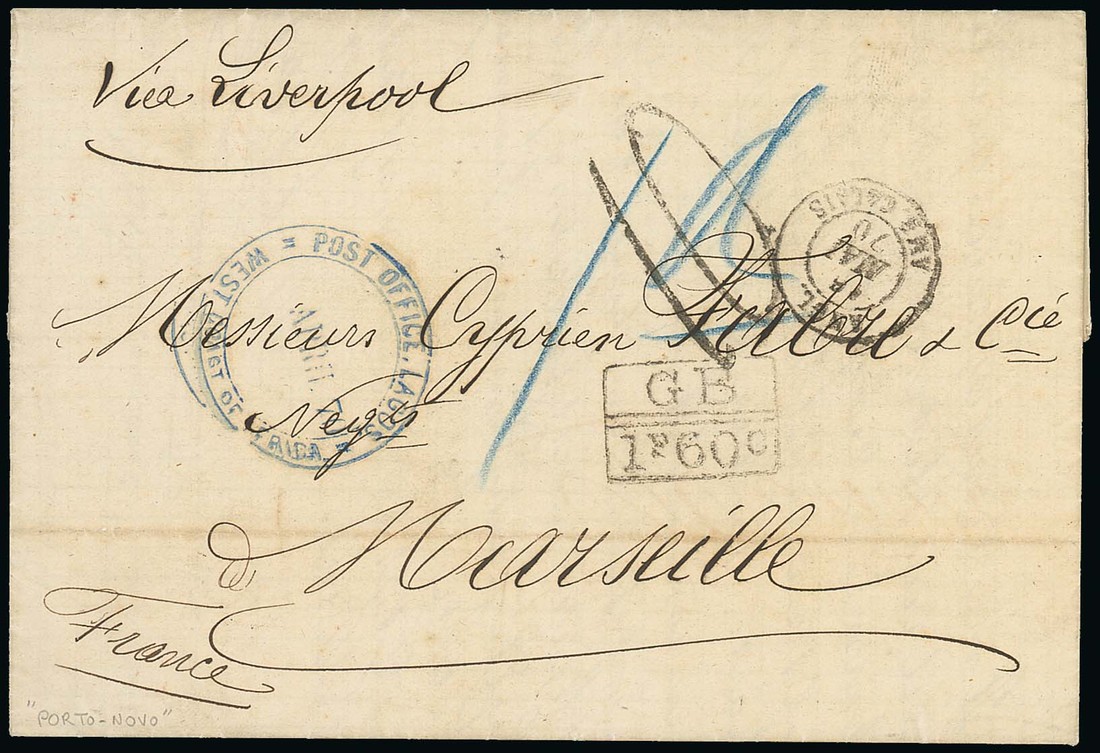 Via Liverpool
POST OFFICE, LAGOS
WEST COAST OF AFRICA
APRIL
CALAIS
MAI
70
Messieurs Cyprien Fabre & Cie
Negts
GB
1F60c
à Marseille
France
"PORTO-NOVO"